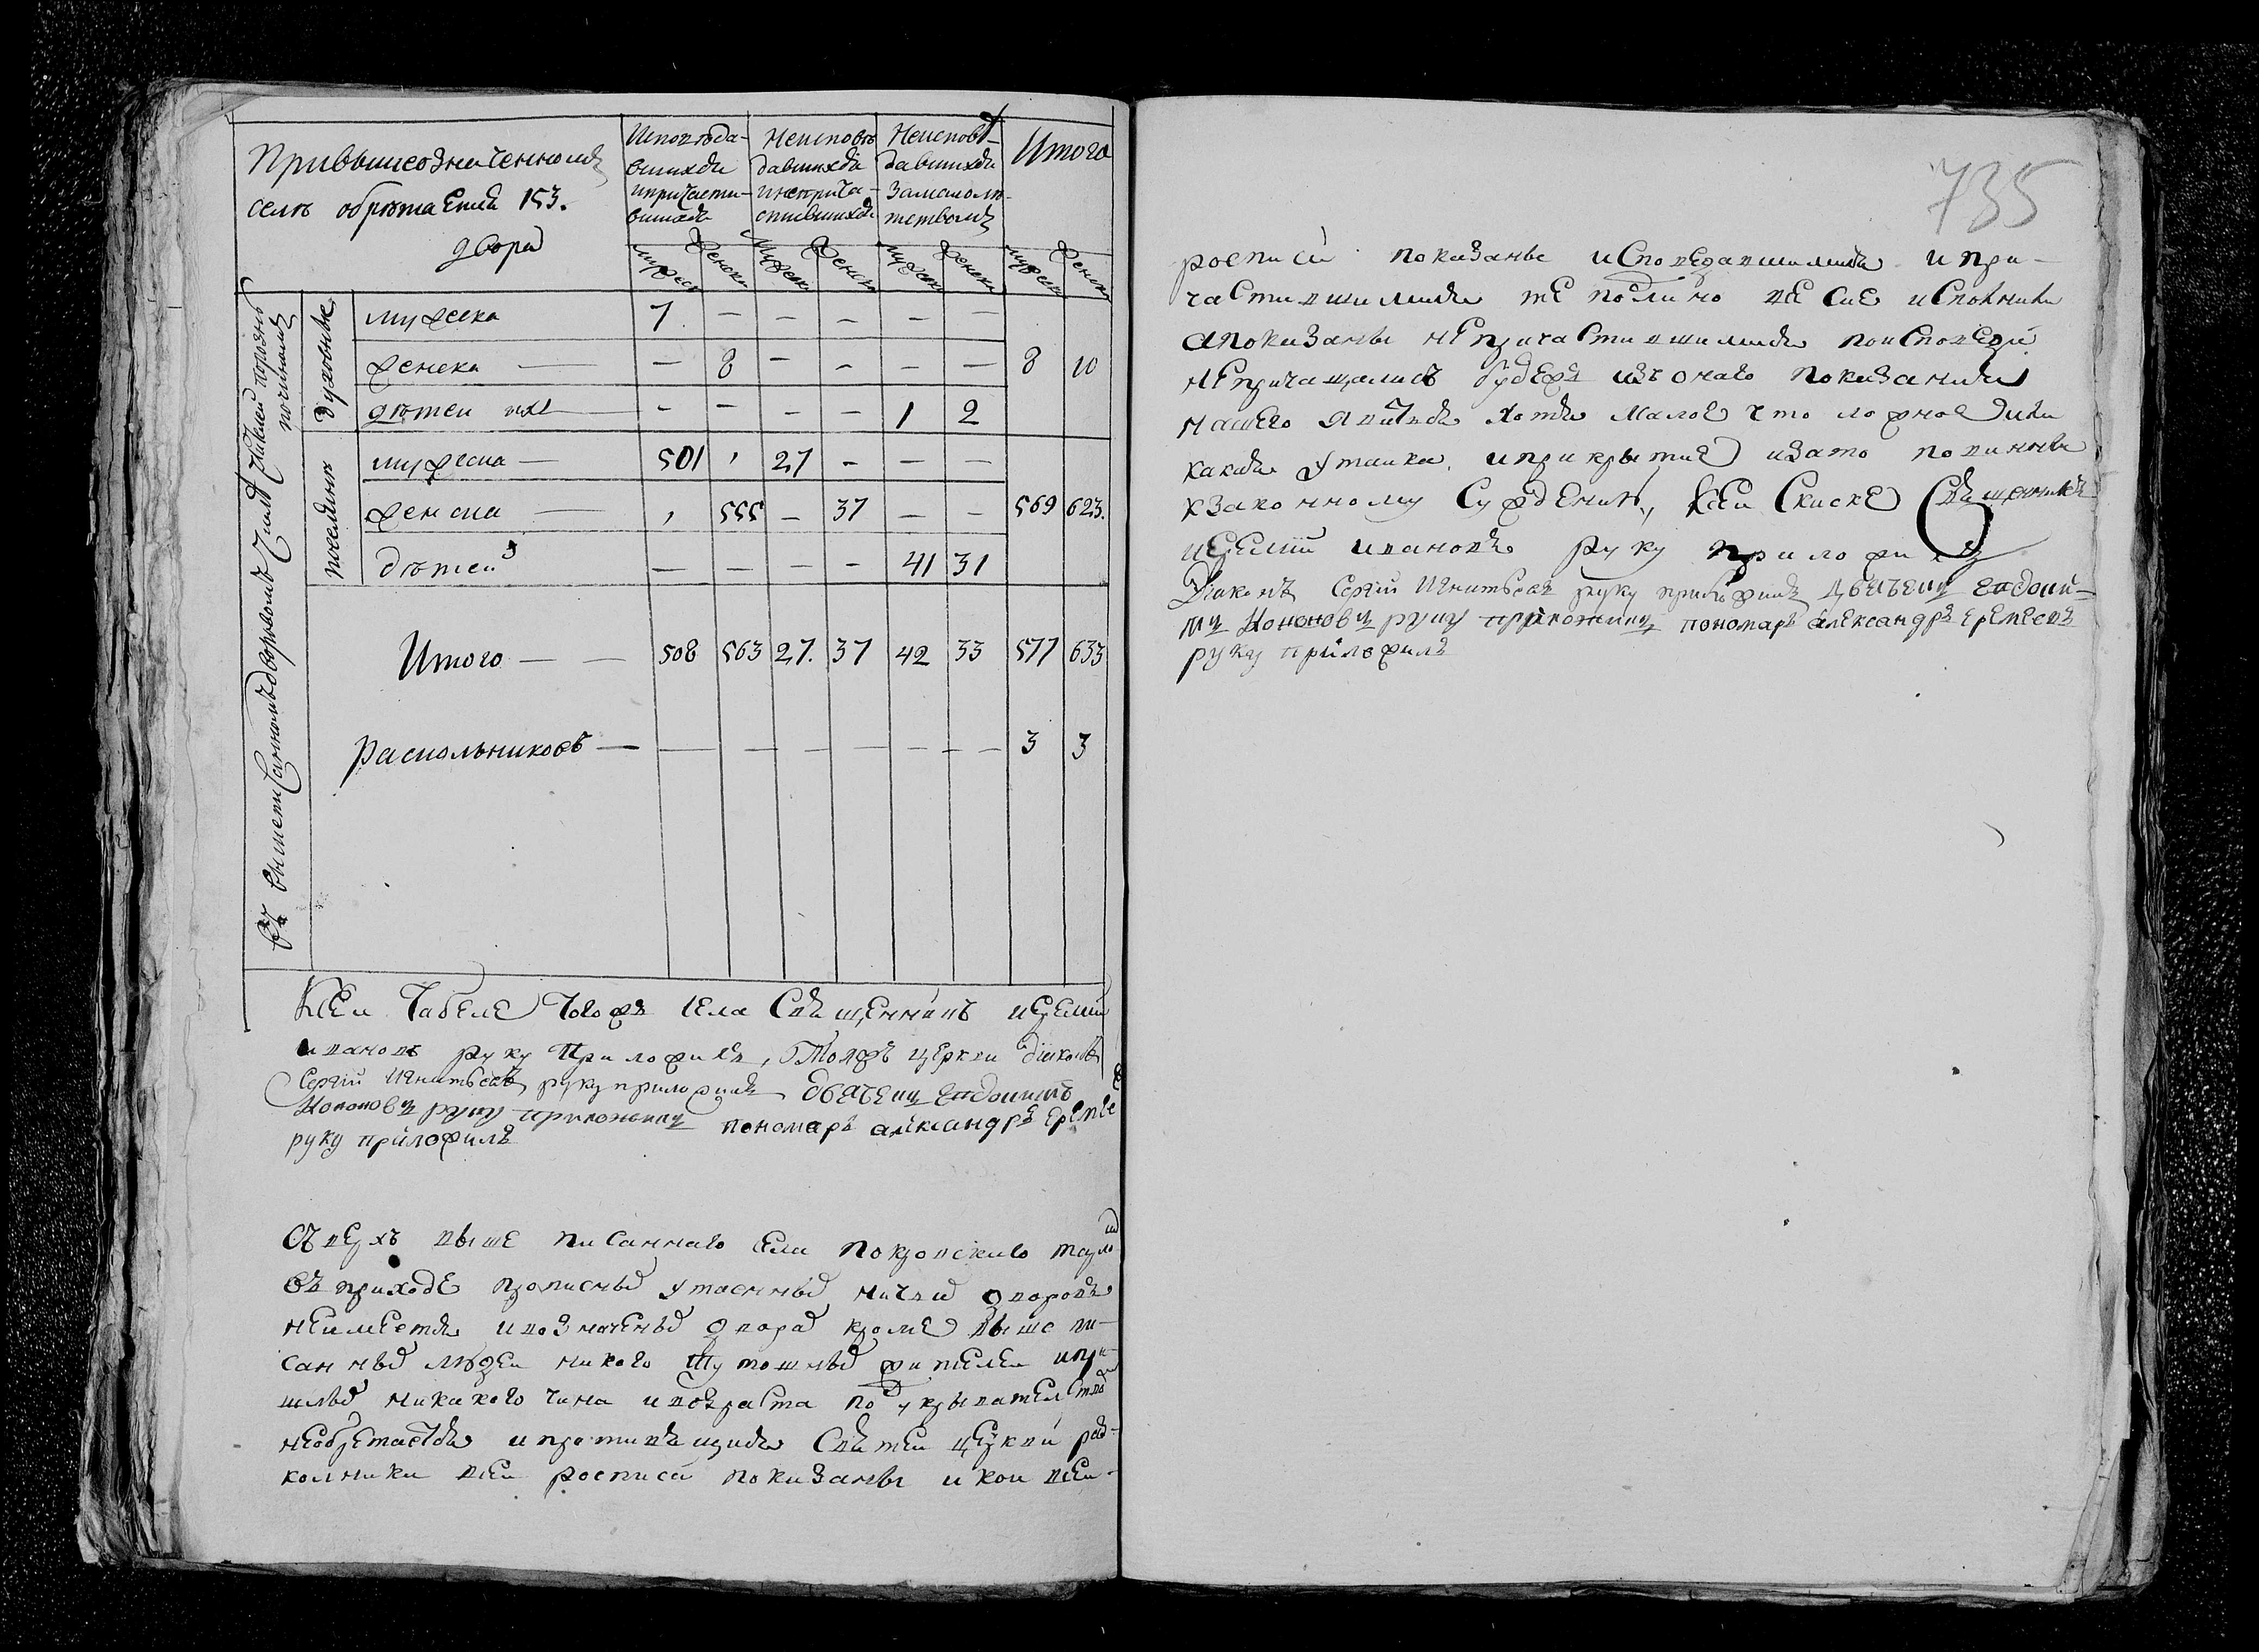 Привышеозначенномъ
селѣ обрѣтается 153.
двора
Исповѣда-
вшихся
ипричасти-
вшихся
Неисповѣ
давшихся
инеприча-
стившихся
Неисповѣ-
давшихся
замалолѣ-
тствомъ
Итого
мужеска женска мужеска женска мужеска женска мужеска женска
духовные
мужеска 7 — — — — —
женска — 8 — — — — 8 10
дѣтей ихъ — — — — 1 2
поселянъ
мужеска — 501 , 27 — — —
женска — , 555 — 37 — — 569 623.
дѣтей — — — — 41 31
Итого — — 508 563 27. 37 42 33 577 633
Раскольниковъ — — — — — — — 3 3
Ксеи Табеле Тогожъ села Священникъ иеремии
ивановъ руку приложилъ, Тояжъ церкви диаконъ
Сергiй Игнатьевъ руку приложилъ дьячекъ евдокимъ
Кононовъ руку приложилъ пономарь александръ ереме
руку приложилъ
Сверхъ выше писаннаго села покровскаго
въприходе прописныхъ утаенныхъ ничьихъ дворовъ
неимеется ивозначеныхъ дворахъ кроме выше пи-
санныхъ людеи никого тутошныхъ жителеи ипри-
шлыхъ никакого чина ивозраста по укрывателству
необретается ипротивящися Святеи церкви рас-
колники всеи росписи показаны икои всеи-
735
росписи показаны исповедавшимися ипри-
частившимися те подлино все исполнили
апоказаны непричастившимися поисповеди
непричащались будежъ изъ онаго показания
нашего явится хотя малое что ложное или
какая утаика иприкрытие изато повинны
кзаконному суждению, ксеи скаске Священникъ
иеремии ивановъ руку приложилъ
Диаконъ Сергiй Игнатьевъ руку приложилъ дьячекъ евдоки-
мъ Кононовъ руку приложилъ пономарь александръ еремеевъ
руку приложилъ